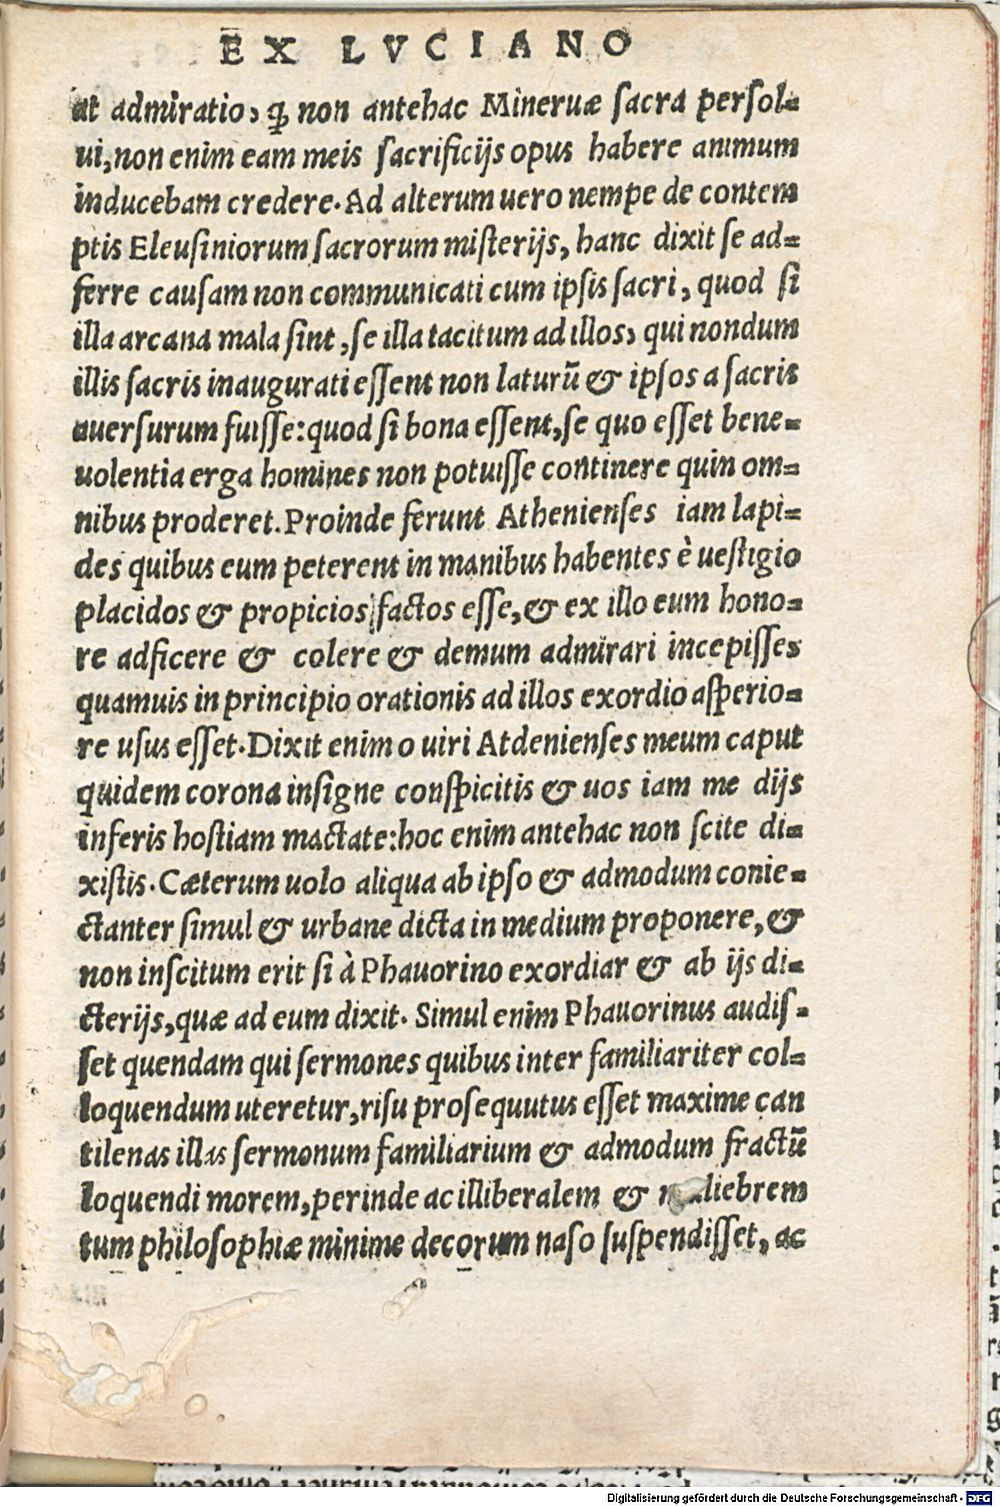 EX LVCIANO
at admiratio, ꝙ non antehac Mineruæ sacra persol-
ui, non enim eam meis sacrificijs opus habere animum
inducebam credere. Ad alterum uero nempe de contem
ptis Eleusiniorum sacrorum misterijs, hanc dixit se ad-
ferre causam non communicati cum ipsis sacri, quod si
illa arcana mala sint, se illa tacitum ad illos, qui nondum
illis sacris inaugurati essent non laturū & ipsos a sacris
auersurum fuisse: quod si bona essent, se quo esset bene-
uolentia erga homines non potuisse continere quin om-
nibus proderet. Proinde ferunt Athenienses iam lapi-
des quibus eum peterent in manibus habentes è uestigio
placidos & propicios factos esse, & ex illo eum hono-
re adficere & colere & demum admirari incepisses
quamuis in principio orationis ad illos exordio asperio-
re usus esset. Dixit enim o uiri Atdenienses meum caput
quidem corona insigne conspicitis & uos iam me dijs
inferis hostiam mactate: hoc enim antehac non scite di-
xistis. Cæterum uolo aliqua ab ipso & admodum conie-
ctanter simul & urbane dicta in medium proponere, &
non inscitum erit si à Phauorino exordiar & ab ijs di-
cterijs, quæ ad eum dixit. Simul enim Phauorinus audis-
set quendam qui sermones quibus inter familiariter col-
loquendum uteretur, risu prosequutus esset maxime can
tilenas illas sermonum familiarium & admodum fractū
loquendi morem, perinde ac illiberalem & muliebrem
tum philosophiæ minime decorum naso suspendisset, ac
Digitalisierung gefördert durch die Deutsche Forschungsgemeinschaft - DFG